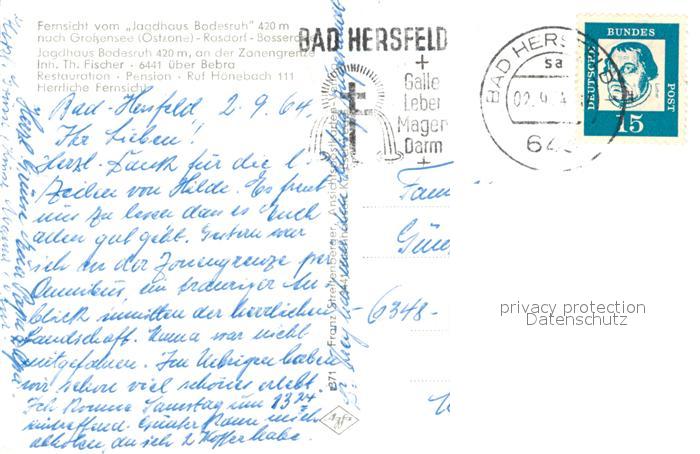 Fernsicht vom „Jagdhaus Bodesruh" 420 m
nach Großensee (Ostzone) - Rasdorf - Bosserode
Jagdhaus Bodesruh 420 m, an der Zonengrenze
Inh. Th. Fischer · 6441 über Bebra
Restauration · Pension · Ruf Hönebach 111
Herrliche Fernsicht
Bad-Hersfeld, 2.9.64.
Ihr Lieben!
Herzl. Dank für die l.
Zeilen von Hilde. Es freut
uns zu lesen das es Euch
allen gut geht. Gestern war
ich an der Zonengrenze per
Omnibus, ein trauriger An-
blick inmitten der herrlichen
Landschaft. war nicht
mitgefahren. Im Uebrigen haben
wir schon viel schönes erlebt.
Ich komme Samstag um 1324
eintreffend. Günter kann mich
abholen, da ich 2 Koffer habe.
Franz Greifenberger, Ansichtskarten
BAD HERSFELD
Galle
Leber
Magen
Darm
BAD HERSFELD
02.9.64
DEUTSCHE
BUNDES
POST
15
Fam
Gün
6348-
privacy protection
Datenschutz